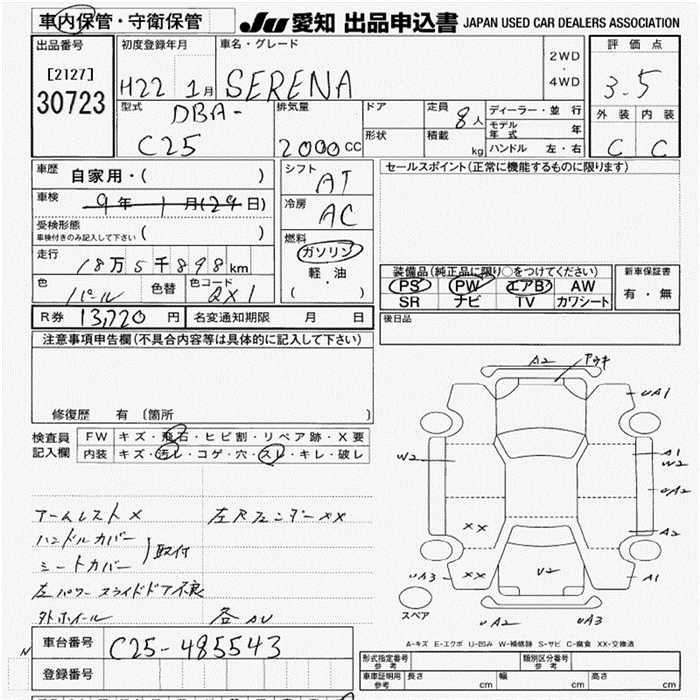 車内保管・守衛保管
JU 愛知 出品申込書 JAPAN USED CAR DEALERS ASSOCIATION
出品番号 初度登録年月 車名・グレード 評価点
[2127] 2WD・4WD
30723 H22 1月 SERENA 3.5
型式 DBA- 排気量 ドア 定員 8人 ディーラー・並行 外装 内装
モデル年式 年
C25 2000cc 形状 積載 kg ハンドル 左・右 C C
車歴 自家用・( ) シフト AT セールスポイント(正常に機能するものに限ります)
車検 9年 1月(29日) 冷房 AC
受検形態
車検付きのみ記入して下さい ( )
燃料
走行 18万5千898km ガソリン
軽・油
( )
装備品(純正品に限り○をつけてください) 新車保証書
色 パール 色替 色コード QX1 PS PW エアB AW 有・無
SR ナビ TV カワシート
R券 13,720円 名変通知期限 月 日 後日品
注意事項申告欄(不具合内容等は具体的に記入して下さい)
修復歴 有 〔箇所 〕
検査員記入欄 FW キズ・飛石・ヒビ割・リペア跡・X要
内装 キズ・汚レ・コゲ・穴・スレ・キレ・破レ
アームレスト× 左Rフェンダー××
ハンドルカバー
シートカバー )取付
左パワースライドドア不良
外ホイール 各AU
車台番号 C25-485543
登録番号
A2
UA1
W2
A1
W2
UA2
A2
××
UA3 ×× U2 A1
スペア
UA2 UA3
A-キズ E-エクボ U-凹み W-補修跡 S-サビ C-腐食 XX-交換済
形式指定番号 参考 類別区分番号 参考
車庫証明用 参考 長さ cm 幅 cm 高さ cm